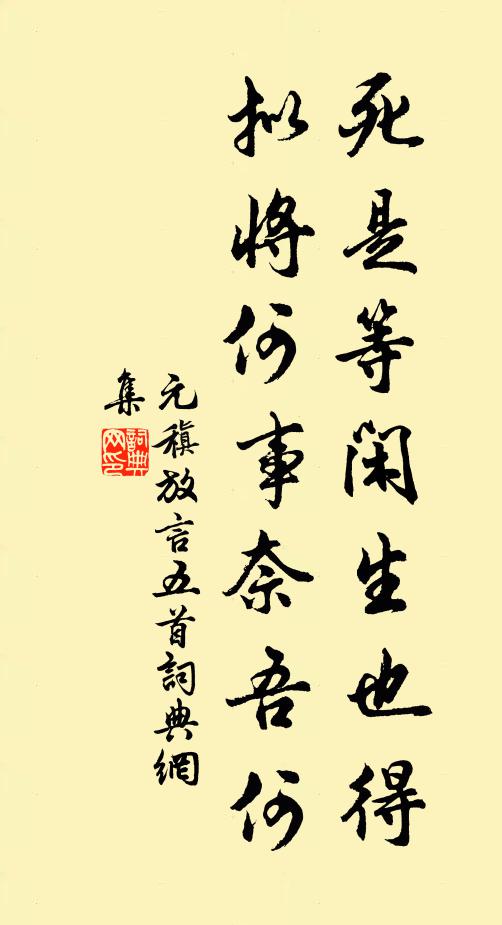 死是等閑生也得
拟將何事奈吾何
元稹放言五首詞典網
集
詞典
网印